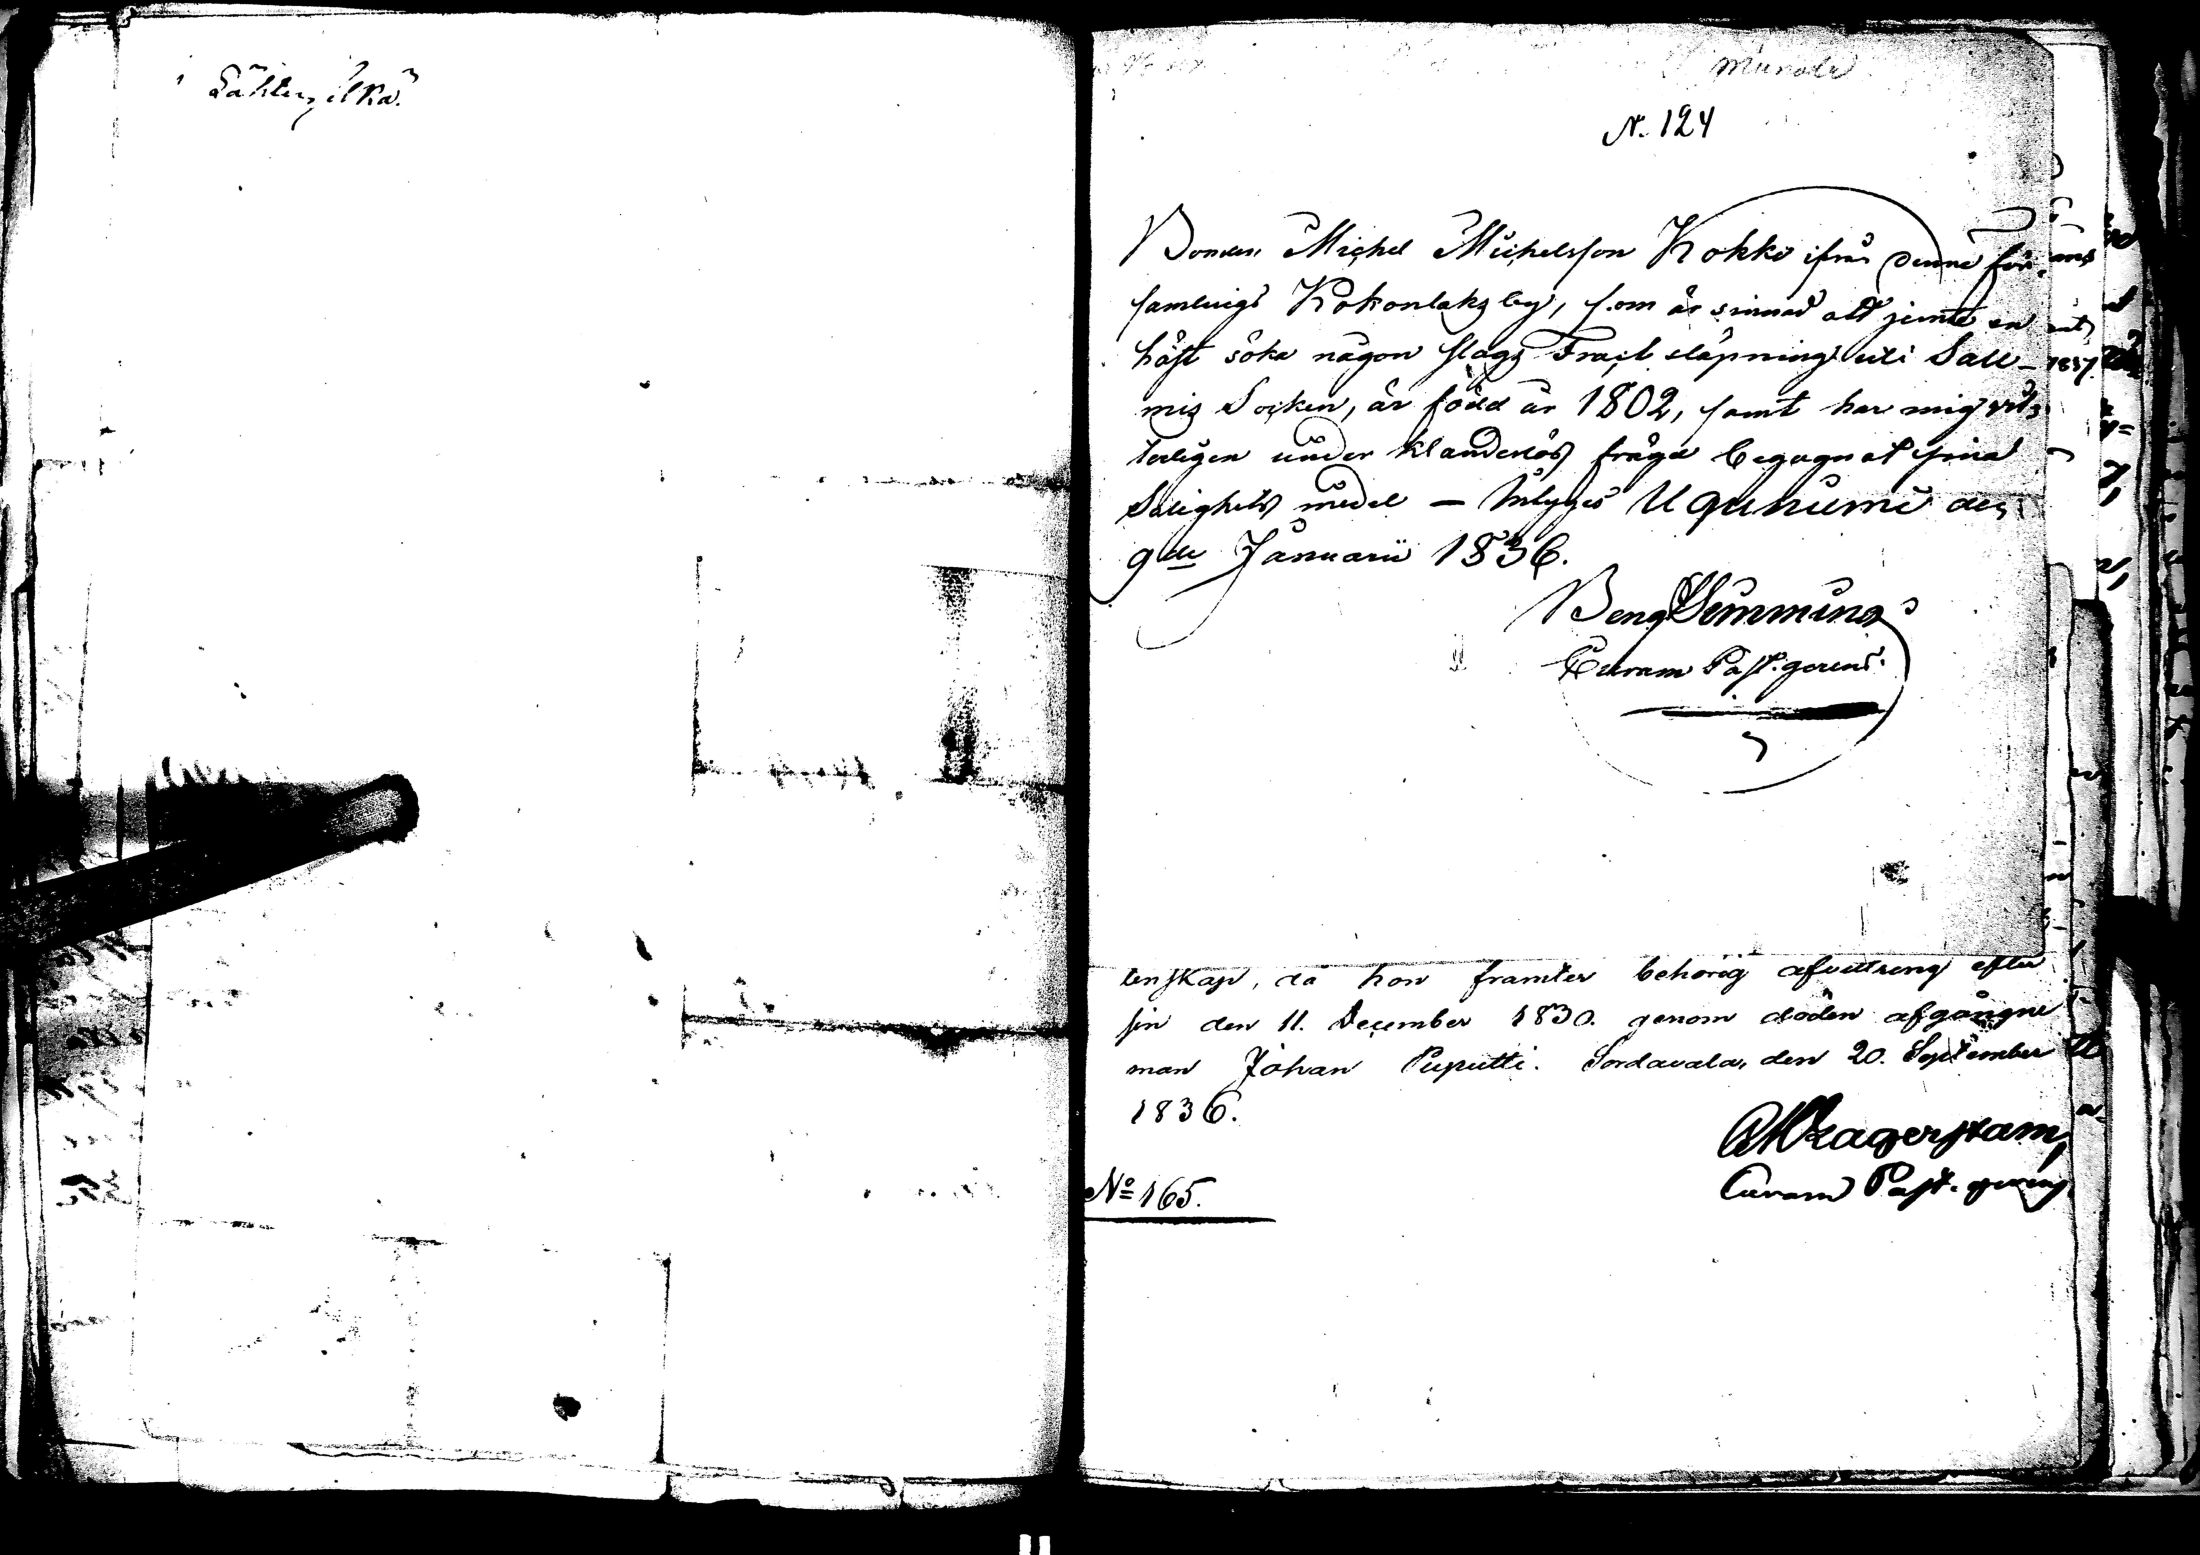 N. 124
Bonden Michel Michelsson Kokko ifrån denne för-
samlings Kokonlaks by, som är sinnad att jemte en
häst söka någon slags Fract släpning uti Sall-
mis Socken, är född år 1802, samt har mig vit-
terligen under klanderlös frägd begagnat sina
Salighets medel – Intygas Uguniemi den
9de Januarii 1836.
Bengt
Curam Past. gerens.
tenskap, då hon framter behörig afvittring efter
sin den 11. December 1830. genom döden afgångne
man Johan Puputti. Sordavala, den 20. September
1836.
Curam Past. gerens
No 165.